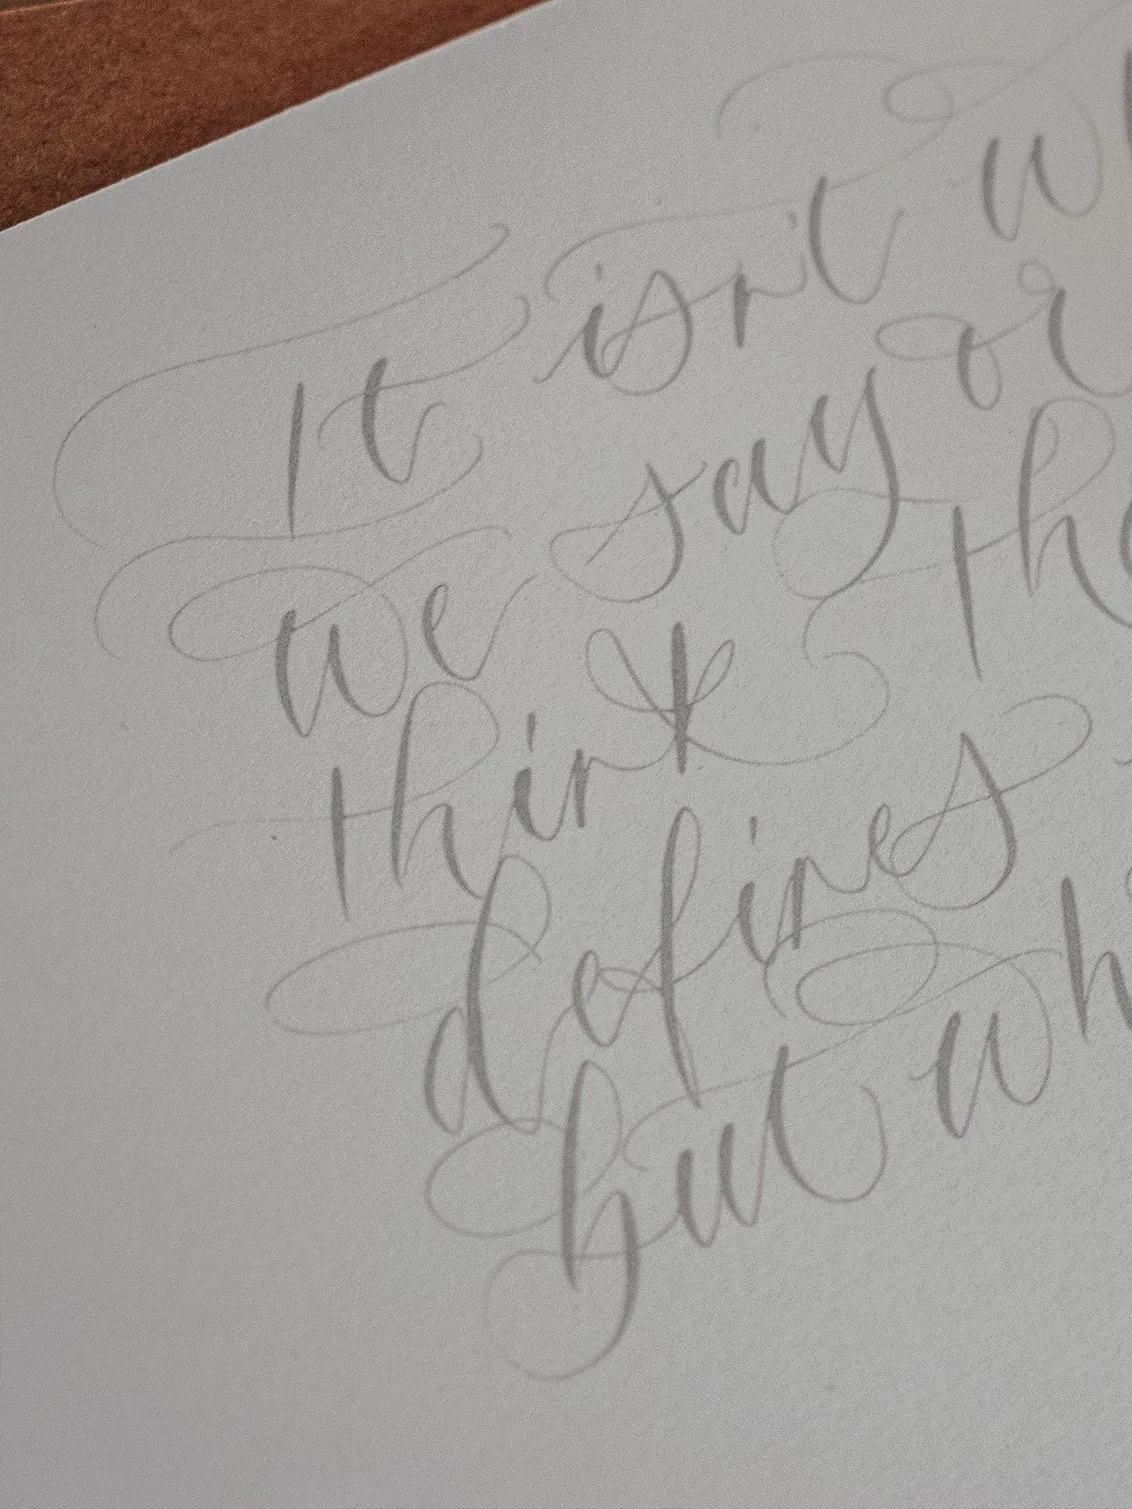 It isn't
we say or
think
defines
but